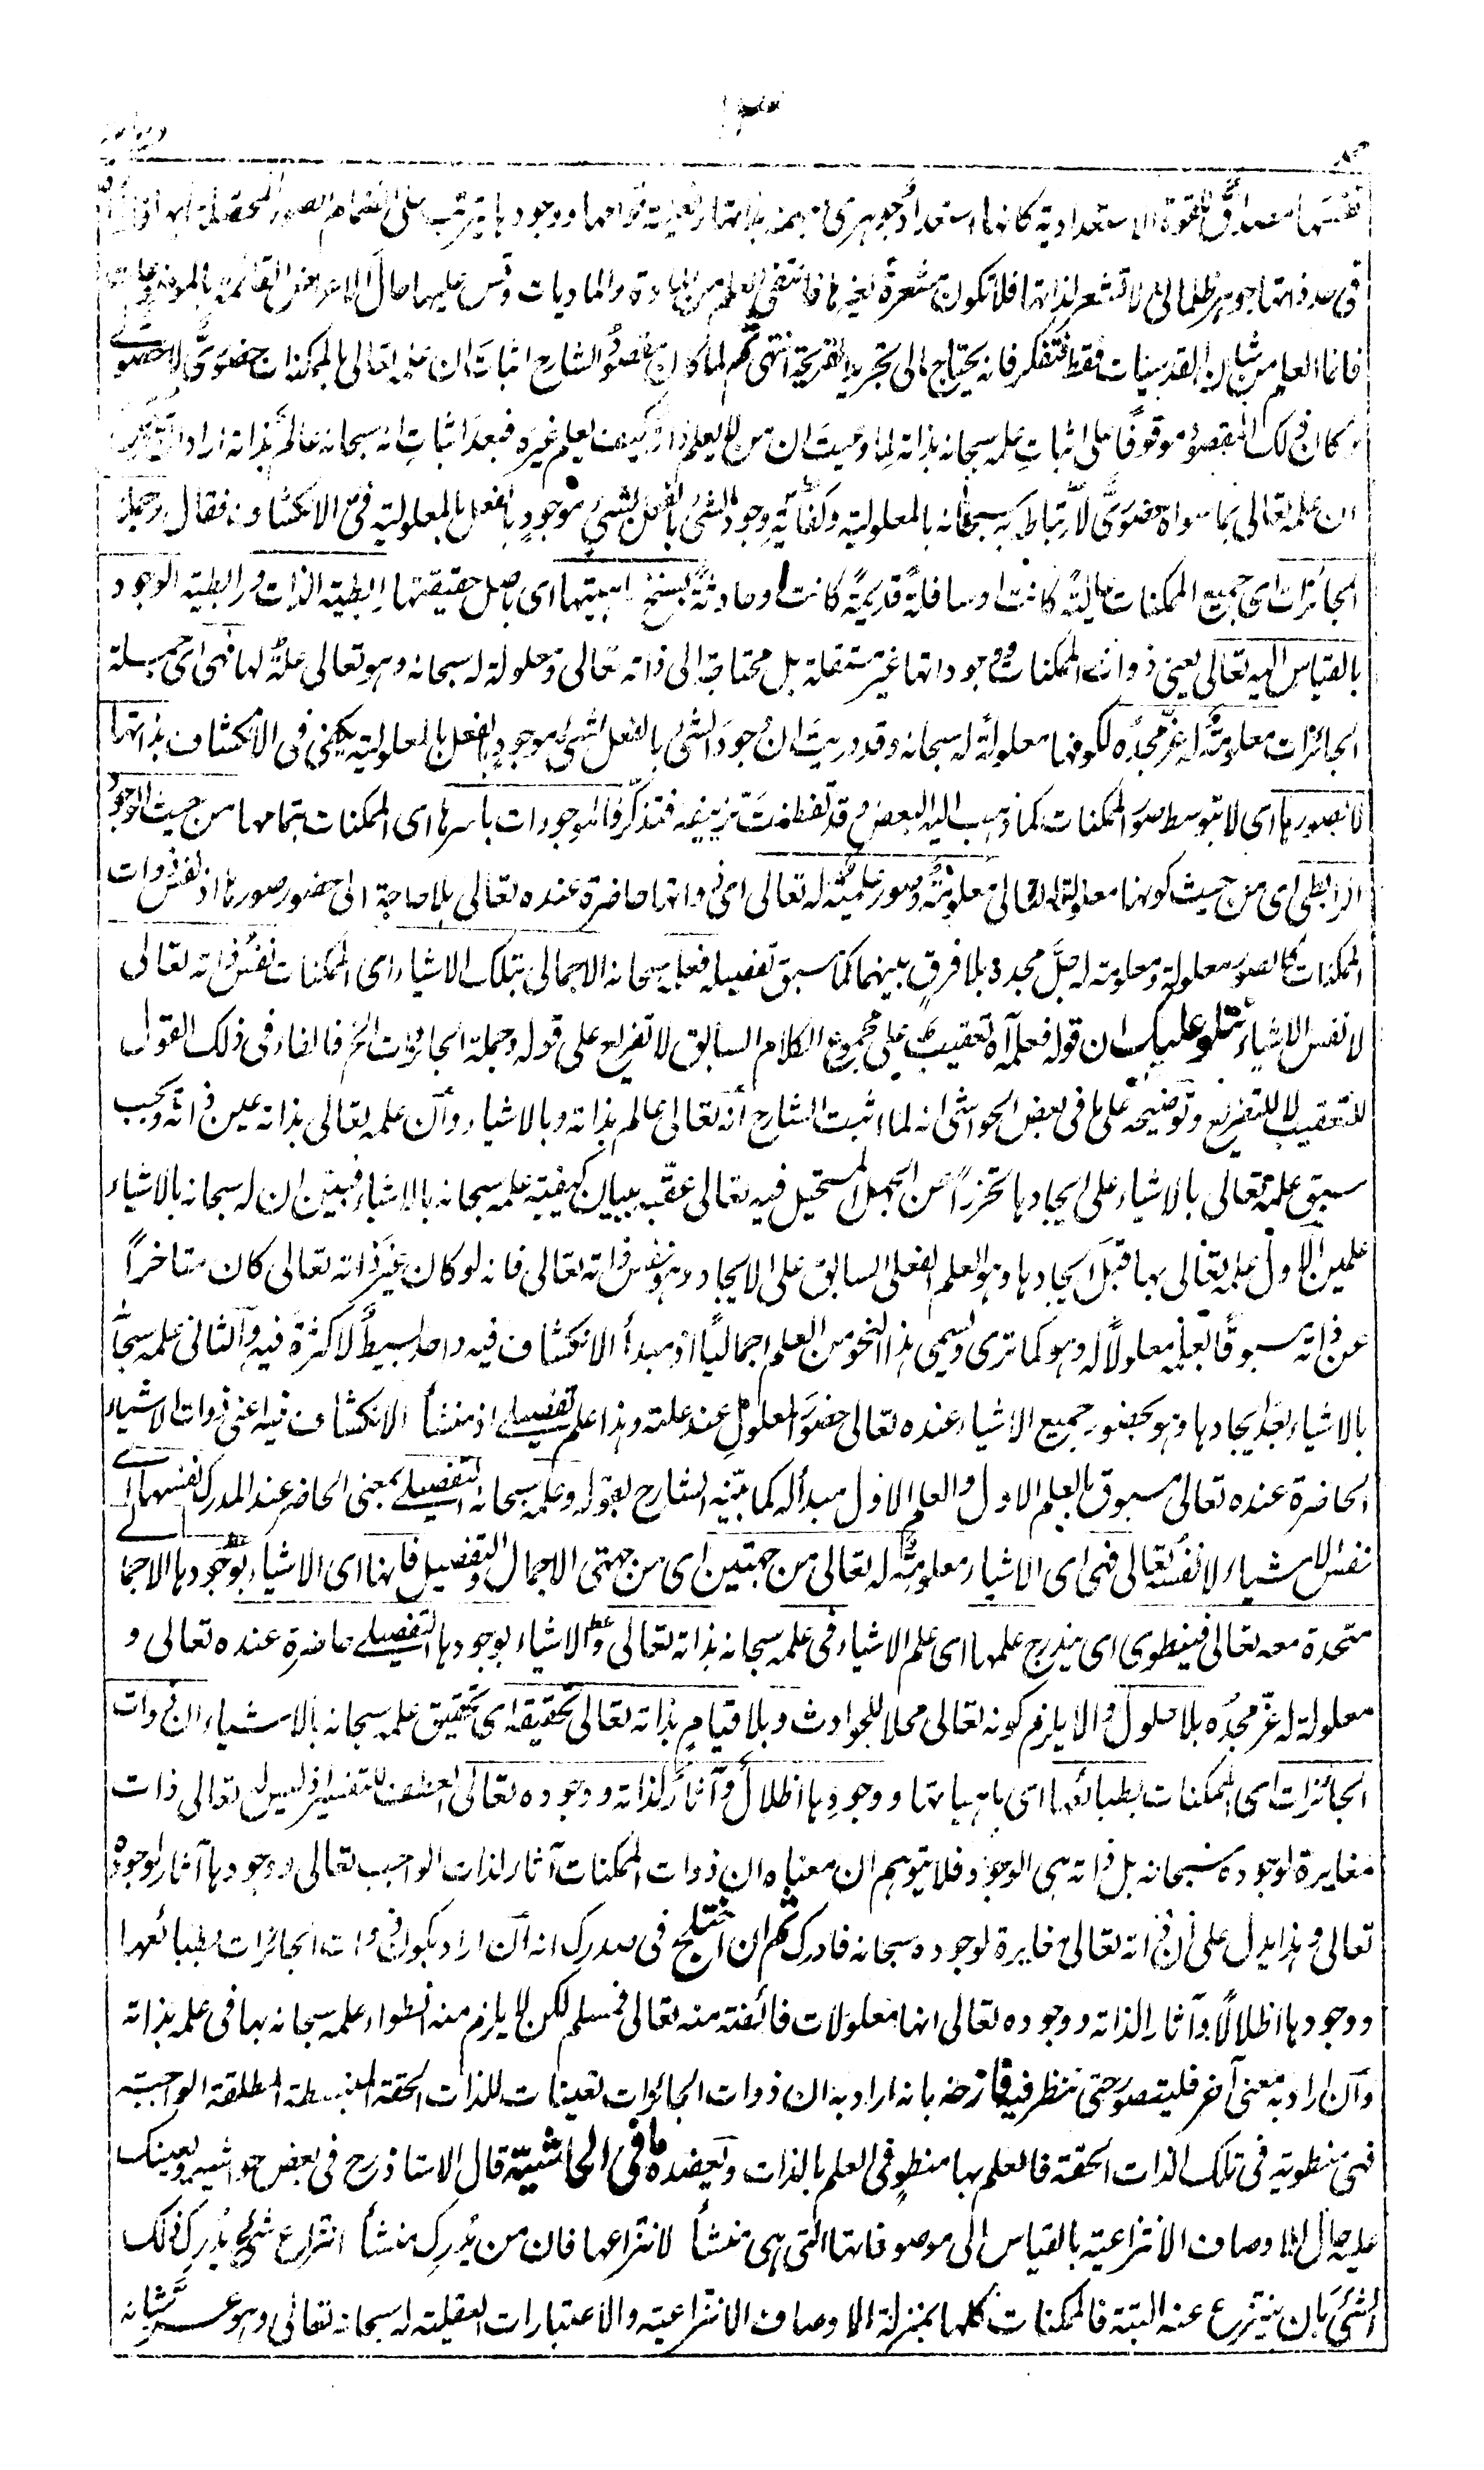 ١٣
نفسها مصداق للقوة الاستعدادية كانها استعداد جوهرى بذاتها ووجودها يترتب على انضمام الصور المحصلة
فى حد ذاتها جوهر ظلمانى لا تشعر لذاتها فلا تكون مشعرة لغيرها فانتفى العلم من المادة والماديات وقس عليها حال الاعراض القائمة بالموضوعات
فانما العلم من شان القدسيات فقط فتفكر فانه يحتاج الى تجريد القريحة انتهى ثم لما كان مقصود الشارح اثبات ان علمه تعالى بالممكنات حضورى لا حصولى
وكان ذلك المقصود موقوفا على اثبات علمه سبحانه بذاته لما دريت ان من لا يعلم ذاته كيف يعلم غيره فبعد اثبات انه سبحانه عالم بذاته اراد
ان علمه تعالى بما سواه حضورى لارتباطه سبحانه بالمعلولية وكفاية وجود الشئ بالفعل لشئ موجود بالفعل بالمعلولية فى الانكشاف فقال وجملة
الجائزات اى جميع الممكنات عالية كانت او سافلة قديمة كانت او حادثة بسنخ ماهيتها اى باصل حقيقتها رابطية الذات ورابطية الوجود
بالقياس اليه تعالى يعنى ذوات الممكنات ووجوداتها غير مستقلة بل محتاجة الى ذاته تعالى ومعلولة له سبحانه وهو تعالى علة لها فهى اى جملة
الجائزات معلومة له عز مجده لكونها معلولة له سبحانه وقد دريت ان وجود الشئ بالفعل لشئ موجود بالفعل بالمعلولية يكفى فى الانكشاف بذاتها
لا بصورها اى لا بتوسط صور الممكنات كما ذهب اليه البعض وقد تفطنت تزييفه فتذكر فالموجودات باسرها اى الممكنات بتمامها من حيث الوجود
الرابطى اى من حيث كونها معلولة له تعالى معلومة وصور علمية له تعالى اى ذواتها حاضرة عنده تعالى بلا حاجة الى حضور صورها اذ نفس ذوات
الممكنات كالصور معلولة ومعلومة له جل مجده بلا فرق بينهما كما سبق تفصيله فعلمه سبحانه الاجمالى بتلك الاشياء اى الممكنات نفس ذاته تعالى
لا نفس الاشياء نتلو عليك ان قوله فعلمه آه تعقيب على مجموع الكلام السابق لا تفريع على قوله وجملة الجائزات الخ فالفاء فى ذلك القول
للتعقيب لا للتفريع وتوضيحه على ما فى بعض الحواشى انه لما اثبت الشارح انه تعالى عالم بذاته وبالاشياء وان علمه تعالى بذاته عين ذاته ويجب
سبق علمه تعالى بالاشياء على ايجادها تحرزا عن الجهل المستحيل فيه تعالى عقبه ببيان كيفية علمه سبحانه بالاشياء فبين ان له سبحانه بالاشياء
علمين الاول علمه تعالى بها قبل ايجادها وهو العلم الفعلى السابق على الايجاد وهو نفس ذاته تعالى فانه لو كان غير ذاته تعالى كان متاخرا
عن ذاته مسبوقا بعلمه معلولا له وهو كما ترى ويسمى هذا النحو من العلم اجماليا اذ مبدأ الانكشاف فيه واحد بسيط لا كثرة فيه والثانى علمه سبحانه
بالاشياء بعد ايجادها وهو بحضور جميع الاشياء عنده تعالى حضور المعلول عند علته وهذا علم تفصيلى اذ منشأ الانكشاف فيه اعنى ذوات الاشياء
الحاضرة عنده تعالى مسبوق بالعلم الاول والعلم الاول مبدأ له كما بينه الشارح بقوله وعلمه سبحانه التفصيلى بمعنى الحاضر عند المدرك نفسها اى
نفس الاشياء لا نفسه تعالى فهى اى الاشياء معلومة له تعالى من جهتين اى من جهتى الاجمال والتفصيل فانها اى الاشياء بوجودها الاجمالى
متحدة معه تعالى فينطوى اى يندرج علمها اى علم الاشياء فى علمه سبحانه بذاته تعالى والاشياء بوجودها التفصيلى حاضرة عنده تعالى و
معلولة له عز مجده بلا حلول والا يلزم كونه تعالى محلا للحوادث وبلا قيام بذاته تعالى تحقيقه اى تحقيق علمه سبحانه بالاشياء ان ذوات
الجائزات اى الممكنات بطبائعها اى بماهياتها ووجودها اظلال وآثار لذاته ووجوده تعالى العطف للتفسير اذ ليس له تعالى ذات
مغايرة لوجوده سبحانه بل ذاته هى الوجود فلا يتوهم ان معناه ان ذوات الممكنات آثار لذات الواجب تعالى ووجودها آثار لوجوده
تعالى وهذا يدل على ان ذاته تعالى مغايرة لوجوده سبحانه فادرك ثم ان اختلج فى صدرك انه ان اراد بكون ذوات الجائزات بطبائعها
ووجودها اظلالا وآثارا لذاته ووجوده تعالى انها معلولات فائضة منه تعالى فمسلم لكن لا يلزم منه انطواء علمه سبحانه بها فى علمه بذاته
وان اراد به معنى آخر فليصور حتى ننظر فيه فازحه بانه اراد به ان ذوات الجائزات تعينات للذات الحقة المنبسطة المطلقة الواجبة
فهى منطوية فى تلك الذات الحقة فالعلم بها منطو فى العلم بالذات ويعضده ما فى الحاشية قال الاستاذ رح فى بعض حواشيه ويعينك
عليه حال الاوصاف الانتزاعية بالقياس الى موصوفاتها التى هى منشأ لانتزاعها فان من يدرك منشأ انتزاع شئ يدرك ذلك
الشئ بان ينتزع عنه البتة فالممكنات كلها بمنزلة الاوصاف الانتزاعية والاعتبارات العقلية له سبحانه تعالى وهو عز شانه